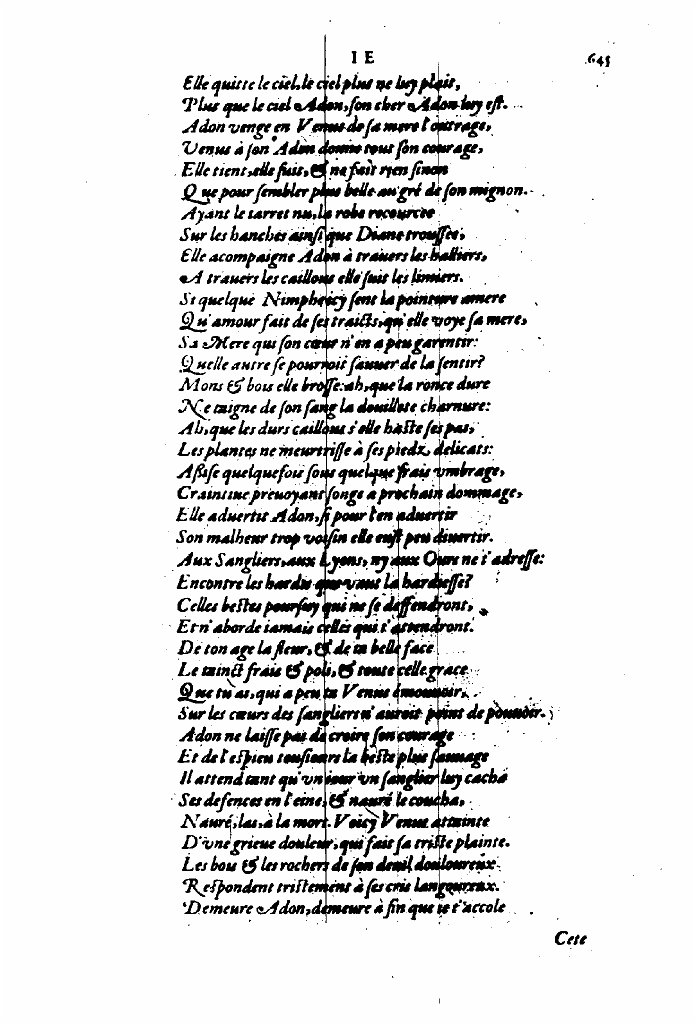 I E 643
Elle quitte le ciel, le ciel plus ne luy plait,
Plus que le ciel Adon, son cher Adon luy est.
Adon venge en Venus de sa mere l'outrage,
Venus à son Adon donne tout son courage,
Elle tient, elle suit, & ne fait rien sinon
Que pour sembler plus belle au gré de son mignon.
Ayant le iarret nu, la robe recourcie
Sur les hanches ainsi que Diane troussee,
Elle acompaigne Adon à trauers les halliers,
A trauers les caillous elle suit les limiers.
Si quelque Nimphe icy sent la pointure amere
Qu'amour fait de ses traicts, qu'elle voye sa mere,
Sa Mere qui son cœur n'en a peu garentir:
Quelle autre se pourroit sauuer de la sentir?
Mons & bois elle brosse: ah, que la ronce dure
Ne taigne de son sang la douillete charnure:
Ah, que les durs caillous s'elle haste ses pas,
Les plantes ne meurtrisse à ses piedz, delicats:
Aßise quelquefois sous quelque frais vmbrage,
Craintiue preuoyant songe a prochain dommage,
Elle aduertit Adon, si pour l'en aduertir
Son malheur trop voisin elle eust peu diuertir.
Aux Sangliers, aux Lyons, ny aux Ours ne t'adresse:
Encontre les hardis que vaut la hardiesse?
Celles bestes poursuy qui ne se deffendront,
Et n'aborde iamais celles qui t'attendront.
De ton age la fleur, & de ta belle face
Le tainct frais & poli, & toute celle grace
Que tu as, qui a peu ta Venus émouuoir,
Sur les cœurs des sangliers n'auroit point de pouuoir.
Adon ne laisse pas de croire son courage
Et de l'espieu tousiours la beste plus sauuage
Il attend tant qu'vn iour vn sanglier luy cacha
Ses defences en l'eine, & nauré le coucha,
Nauré, las, à la mort. Voicy Venus atteinte
D'vne grieue douleur, qui fait sa triste plainte.
Les bois & les rochers de son deuil douloureux
Respondent tristement à ses cris langoureux.
Demeure Adon, demeure à fin que ie t'accole
Cete